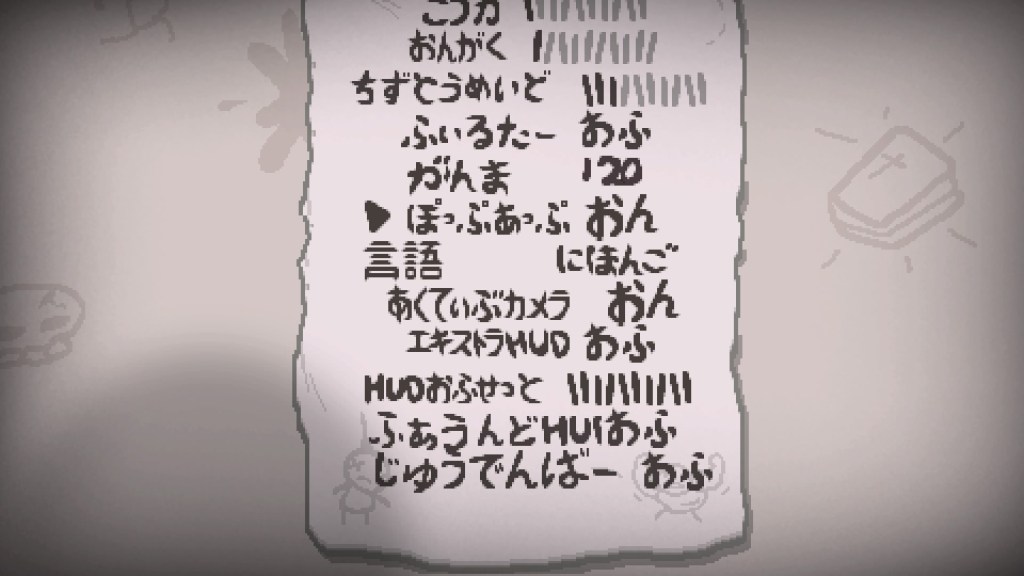 こうか
おんがく
ちずとうめいど
ふぃるたー おふ
がんま 120
ぽっぷあっぷ おん
言語 にほんご
あくてぃぶカメラ おん
エキストラHUD おふ
HUDおふせっと
ふぁうんどHU おふ
じゅうでんばー おふ